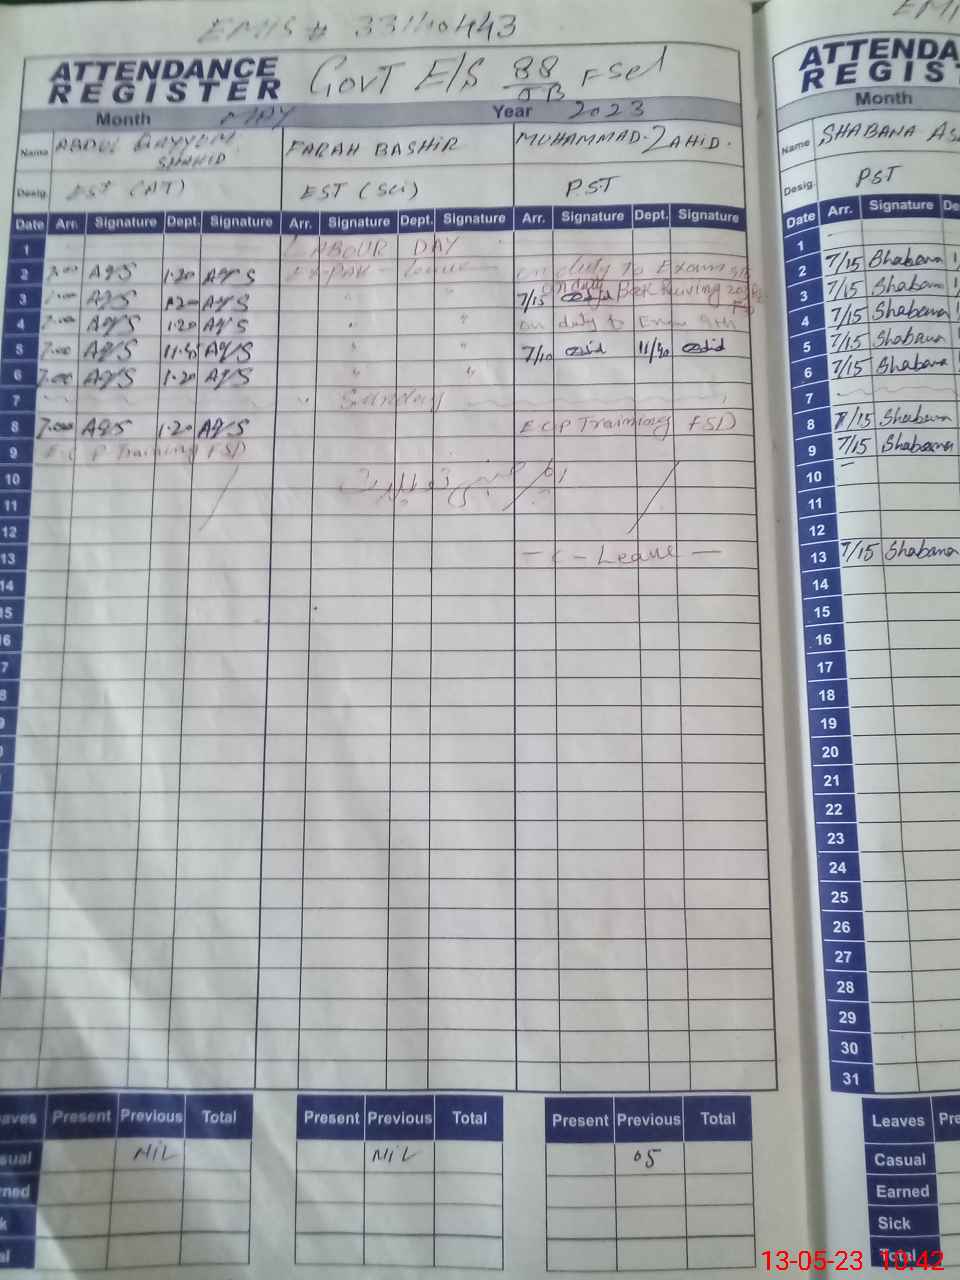 EMIS # 33110443
ATTENDANCE REGISTER Govt E/S 88 FSd
Month MAY Year 2023
Name ABDUL QAYYUM SHAHID FARAH BASHIR MUHAMMAD ZAHID.
Desig. EST (AT) EST (Sci) PST
Date Arr. Signature Dept. Signature Arr. Signature Dept. Signature Arr. Signature Dept. Signature
1 LABOUR DAY
2 7.00 AQS 1.20 AQS Ex-Pak- Leave on duty to Exam 9th
3 7.00 AQS 1.20 AQS " " 7/15 on duty Book Receiving
4 7.00 AQS 1.20 AQS " " on duty to Exam 9th
5 7.00 AQS 11.45 AQS " " 7/10 11/30
6 7.00 AQS 1.20 AQS " "
7 Sunday
8 7.00 AQS 1.20 AQS ECP Training FSD
9 ECP Training FSD
10
11
12
13 - C - Leave -
14
15
16
17
18
Leaves Present Previous Total Present Previous Total Present Previous Total
Casual NIL NIL 05
Earned
ATTENDA
REGIST
Month
Name SHABANA AS
Desig. PST
Date Arr. Signature De
1
2 7/15 Shabana
3 7/15 Shabana
4 7/15 Shabana
5 7/15 Shabana
6 7/15 Shabana
7
8 7/15 Shabana
9 7/15 Shabana
10
11
12
13 7/15 Shabana
14
15
16
17
18
19
20
21
22
23
24
25
26
27
28
29
30
31
Leaves Pre
Casual
Earned
Sick
Total
13-05-23 10:42